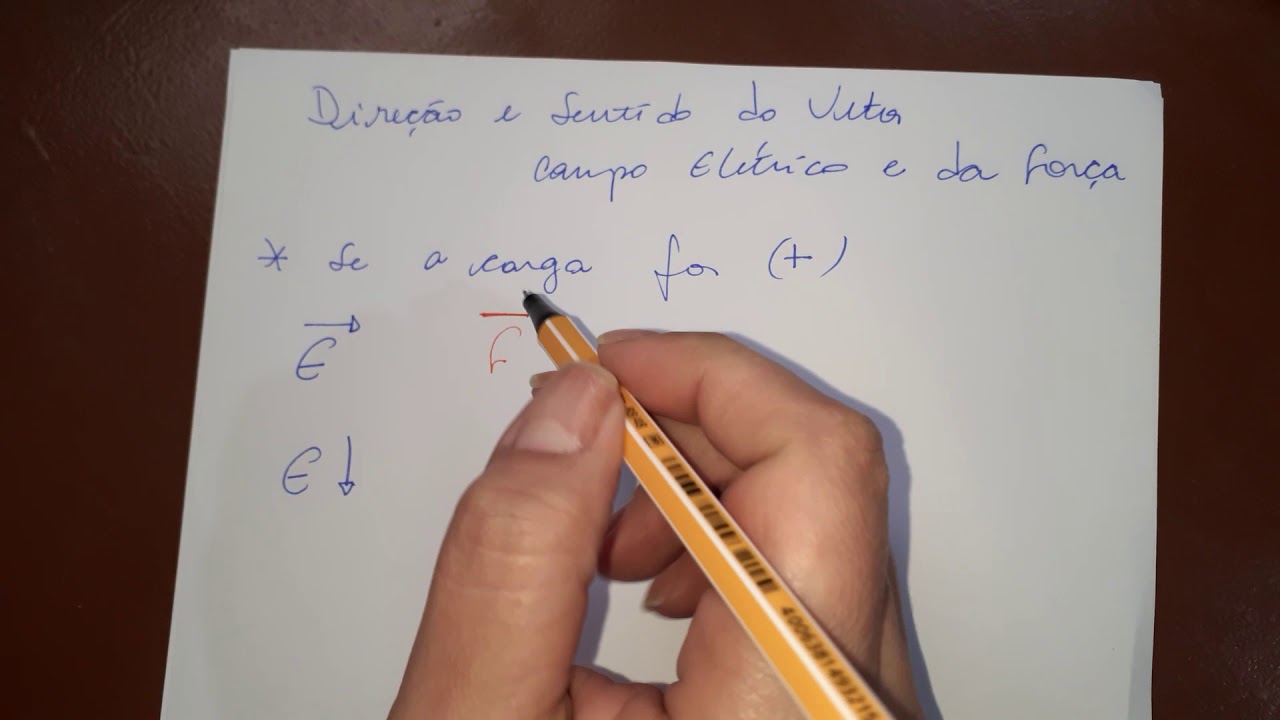 Direção e Sentido do Vetor
campo Elétrico e da força
* Se a carga for (+)
E F
E ↓
4006381493215